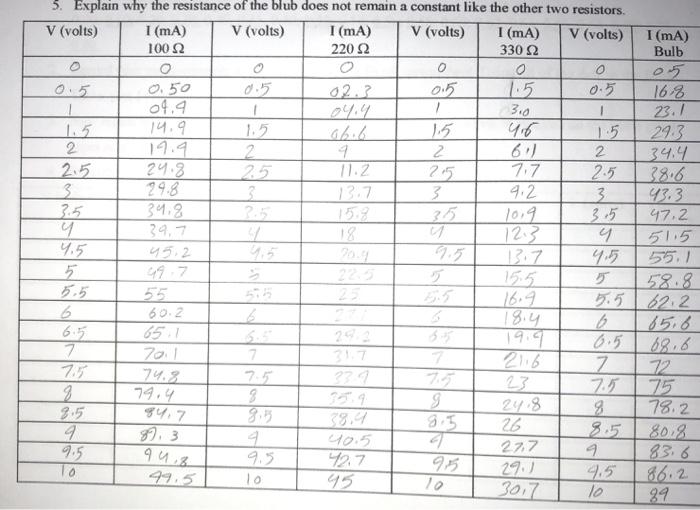 5. Explain why the resistance of the blub does not remain a constant like the other two resistors.
V (volts) I (mA) V (volts) I (mA) V (volts) I (mA) V (volts) I (mA)
100 Ω 220 Ω 330 Ω Bulb
0 0 0 0 0 0 0 05
0.5 0.50 0.5 02.3 0.5 1.5 0.5 16.8
1 04.9 1 04.4 1 3.0 1 23.1
1.5 14.9 1.5 06.6 1.5 4.6 1.5 29.3
2 19.9 2 9 2 6.1 2 34.4
2.5 24.8 2.5 11.2 2.5 7.7 2.5 38.6
3 29.8 3 13.7 3 9.2 3 43.3
3.5 34.8 3.5 15.8 3.5 10.9 3.5 47.2
4 39.7 4 18 4 12.3 4 51.5
4.5 45.2 4.5 20.4 4.5 13.7 4.5 55.1
5 49.7 5 22.5 5 15.5 5 58.8
5.5 55 5.5 25 5.5 16.9 5.5 62.2
6 60.2 6 6 18.4 6 65.6
6.5 65.1 6.5 29.2 6.5 19.9 6.5 68.6
7 70.1 7 31.7 7 21.6 7 72
7.5 74.8 7.5 33.9 7.5 23 7.5 75
8 79.4 8 35.9 8 24.8 8 78.2
8.5 84.7 8.5 38.4 8.5 26 8.5 80.8
9 89.3 9 40.5 9 27.7 9 83.6
9.5 94.8 9.5 42.7 9.5 29.1 9.5 86.2
10 99.5 10 45 10 30.7 10 89